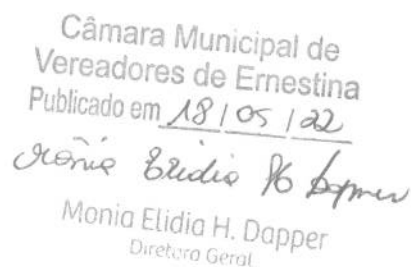 Câmara Municipal de
Vereadores de Ernestina
Publicado em 18 / 05 / 22
Mônia Elidia H Dapper
Monia Elidia H. Dapper
Diretora Geral